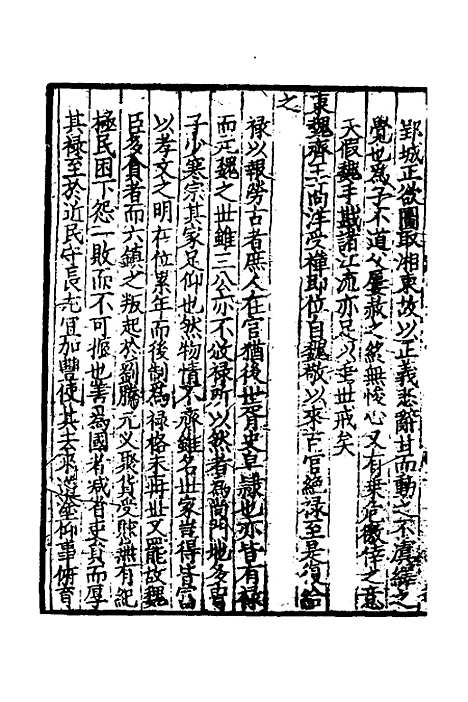 郢城正欲圖取湘東故以正義悲辭甘而動之不虞繹之
覺也為子不道父屢赦之終無悛心又有乘危徼倖之意
天假魏手戕諸江流亦足以垂世戒矣
東魏齊王高洋受禪即位自魏敬以來百官絕祿至是復給
之
祿以報勞古者庶人在官猶後世胥史皂隸也亦皆有祿
而元魏之世雖三公亦不頒祿所以然者為尚門地多曰
子少寒宗其家足仰也然物情不齊雖名世家豈得皆富
以孝文之明在位累年而後制為祿格未再世又罷故魏
臣多貪者而六鎮之叛起於劉騰元义聚貨受賕無有紀
極民困下怨一敗而不可振也善為國者減省吏員而厚
其祿至於近民守長尤宜加豐使其去來道塗仰事俯育